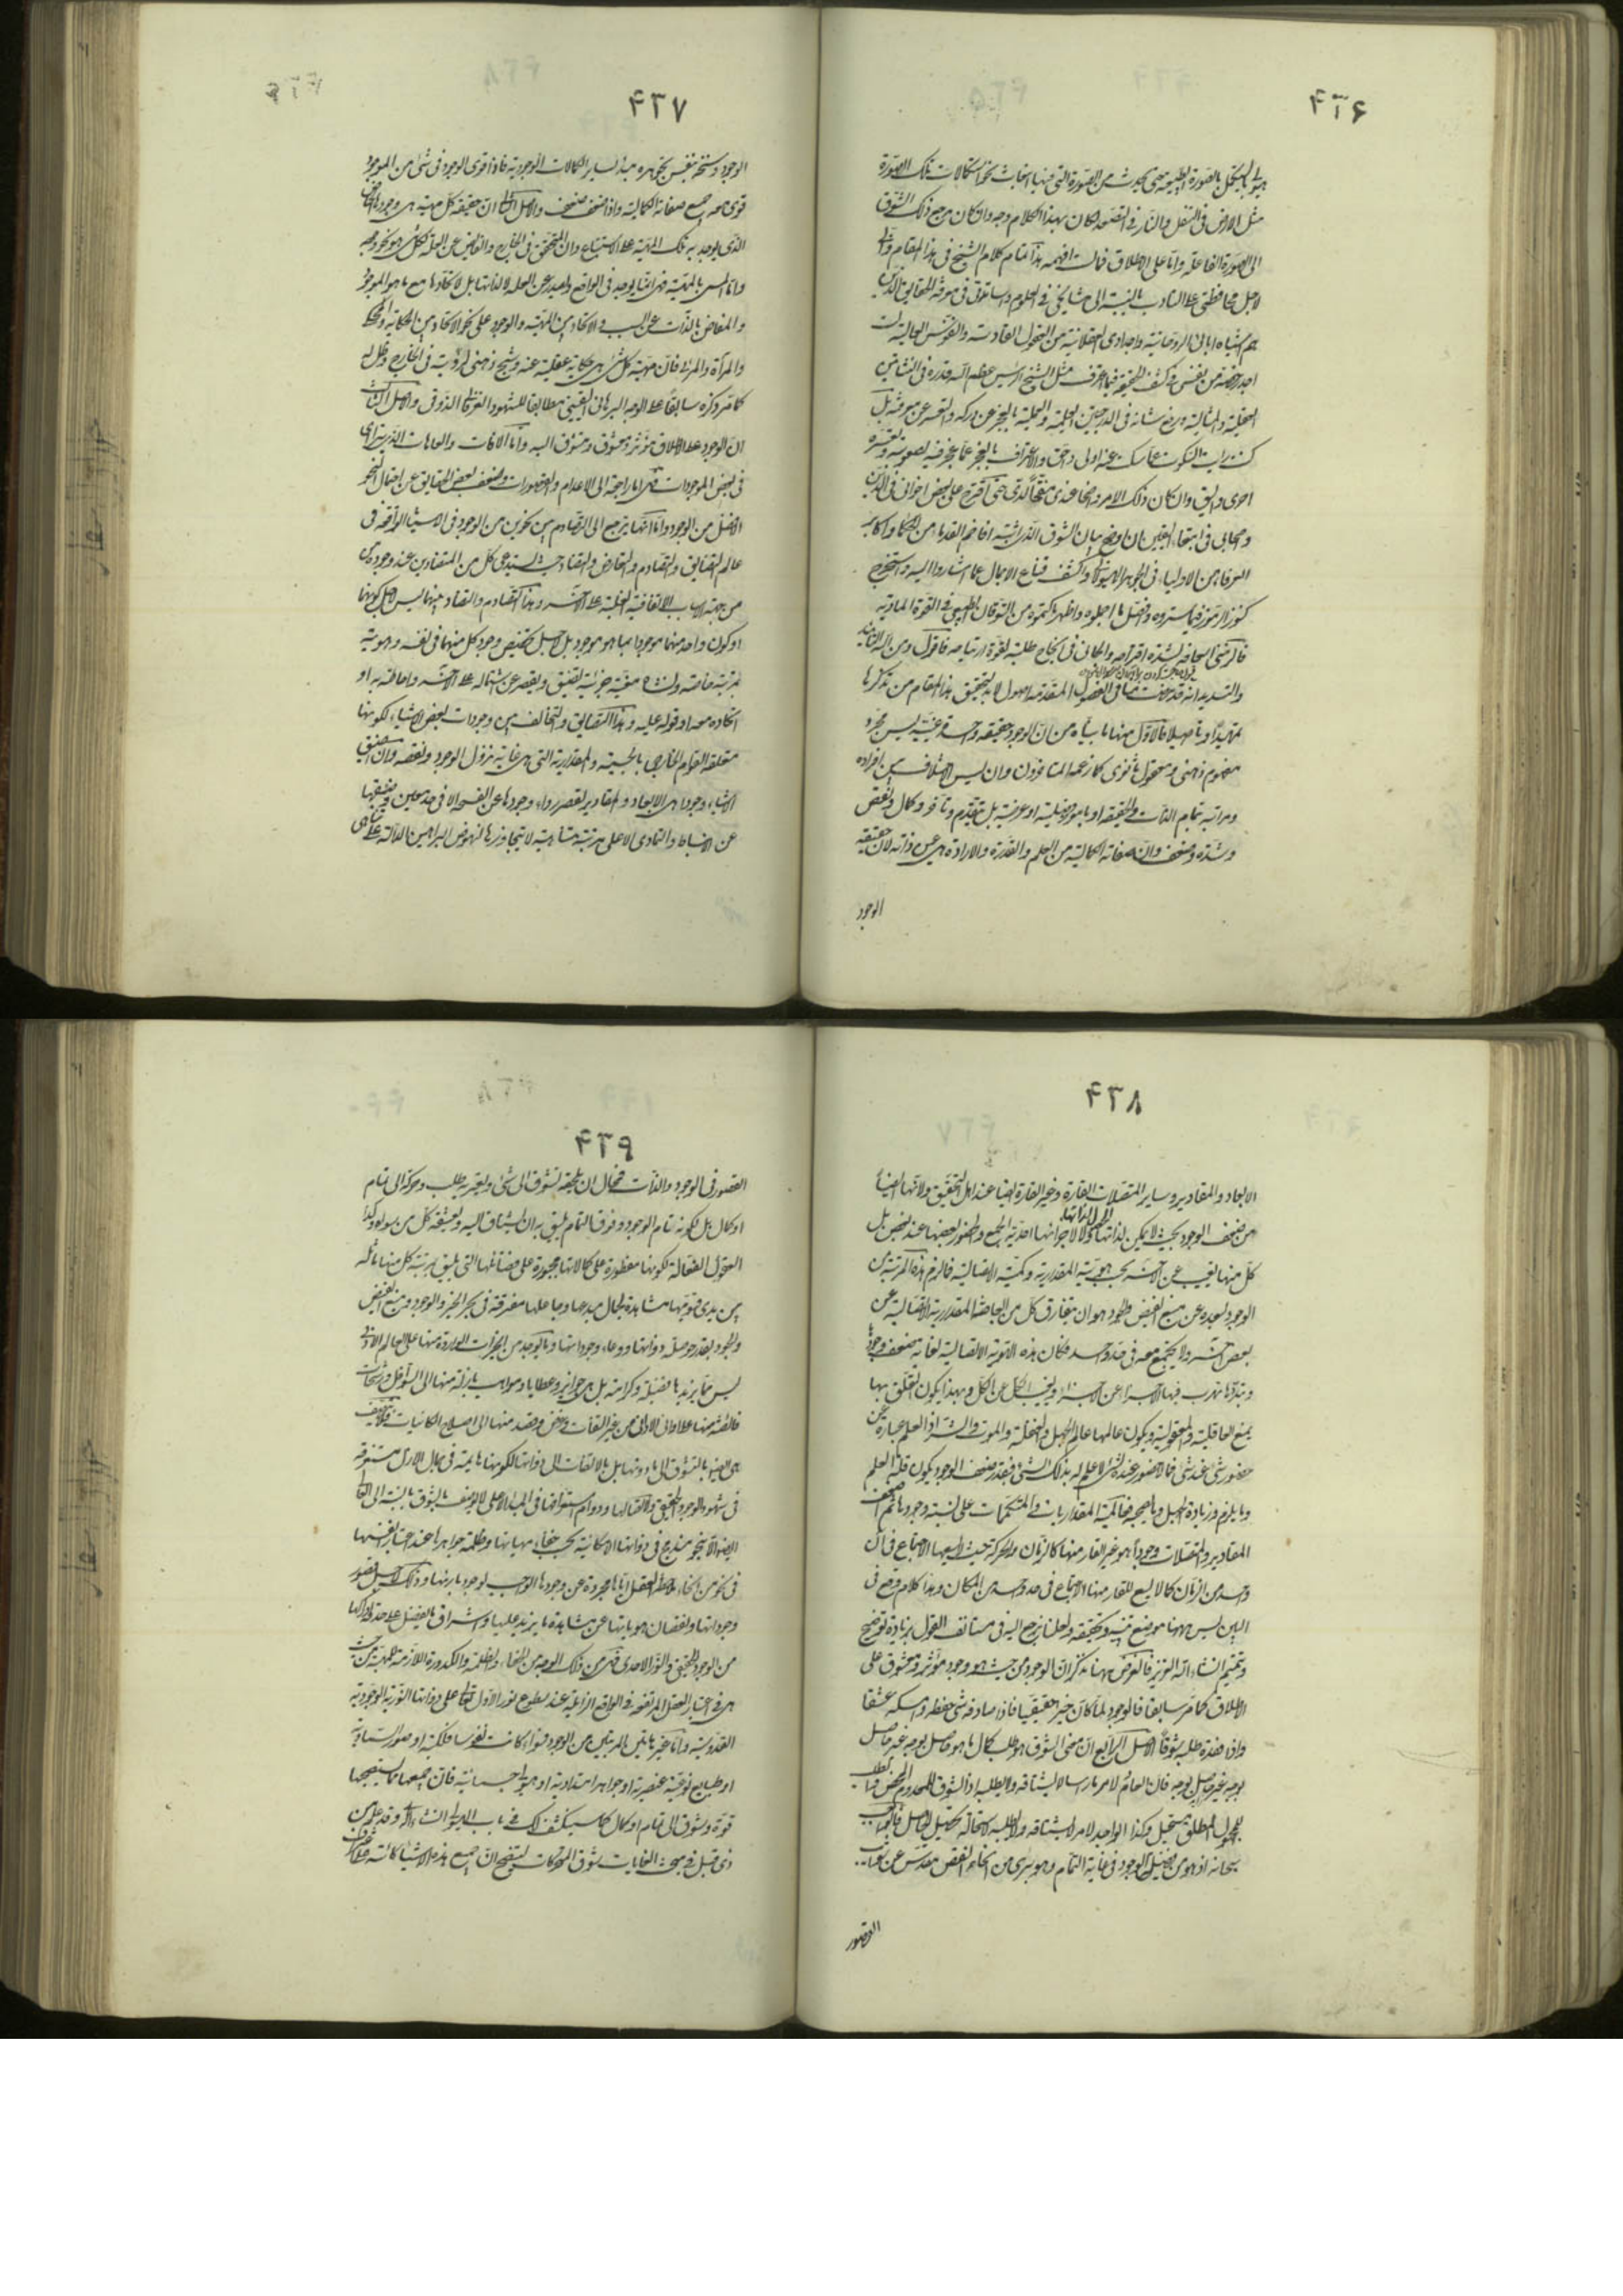 ۴۳۶
هيولى ليستكمل بالصورة الطبيعية حتى يحدث من الصورة التى فيها انبعاث نحو استكمالات تلك الصورة
مثل الارض فى التسفل والنار فى التصعد لكان بهذا الكلام وجه وان كان مرجع ذلك الشوق
الى الصورة الفاعلة واما على الاطلاق فما لست افهمه هذا تمام كلام الشيخ فى هذا المقام وانى
لاجل محافظتى على التادب بالنسبة الى مشايخى فى العلوم واساتيدى فى معرفة الحقايق الذين
هم اشباه ابائى الروحانية واجدادى العقلانية من العقول القادسة والنفوس العالية لست
اجد رخصة من نفسى فى كشف الحقيقة فيما اعترف مثل الشيخ الرئيس عظم الله قدره فى النشاتين
العقلية والمثالية ورفع شانه فى الدرجتين العلمية والعملية بالعجز عن دركه والعسر عن معرفته بل
كنت رايت السكوت عما سكت عنه اولى واحق والاعتراف بالعجز عما عجز فيه لصعوبته وتعسره
احرى واليق وان كان ذلك الامر واضحا عندى منقحا لدى حتى اقترح على بعض اخوانى فى الدين
واصحابى فى ابتغاء اليقين ان اوضح بيان الشوق الذى اثبته افاخم القدماء من الحكماء واكابر
العرفاء من الاولياء فى الجوهر الهيولانى واكشف قناع الاجمال عما اشاروا اليه واستخرج
كنوز الرموز فيما ستروه وافصل ما اجملوه واظهر ما كتموه من التوقان الطبيعى فى القوة المادية
فالزمنى اسعافه لشدة اقتراحه والجانى فى انجاح طلبته لقوة ارتياحه فاقول ومن الله التاييد
والتسديد انه قد مضت منا فى الفصول المتقدمة اصول لا بد لتحقيق هذا المقام من تذكرها
تمهيدا وتاصيلا فالاول منها ما بيناه من ان الوجود حقيقة واحدة عينية ليس مجرد
مفهوم ذهنى ومعقول ثانوى كما زعمه المتاخرون وان ليس الاختلاف بين افراده
ومراتبه بتمام الذات والحقيقة او بامور فصلية او عرضية بل بتقدم وتاخر وكمال ونقص
وشدة وضعف وان صفاته الكمالية من العلم والقدرة والارادة هى عين ذاته لان حقيقة
الوجود
۴۳۷
الوجود وسنخه بنفس تجوهره مبدا لساير الكمالات الوجودية فاذا قوى الوجود فى شئ من الموجودات
قوى معه جميع صفاته الكمالية واذا ضعف ضعفت والاصل الثانى ان حقيقة كل مهية هى وجودها الخاص
الذى يوجد به تلك المهية على الاستتباع وان المتحقق فى الخارج والفايض عن العلة لكل شئ هو نحو وجوده
واما المسمى بالمهية فهى انما يوجد فى الواقع ويصدر عن العلة لا لذاتها بل لاتحادها مع ما هو الموجود
والمفاض بالذات عن السبب والاتحاد بين المهية والوجود على نحو الاتحاد بين الحكاية والمحكى
والمرآة والمرئى فان مهية كل شئ هى حكاية عقلية عنه وشبح ذهنى لرؤيته فى الخارج وظل له
كما مر ذكره سابقا على الوجه البرهانى اليقينى مطابقا للشهود العرفانى الذوقى والاصل الثالث
ان الوجود على الاطلاق مؤثر ومعشوق ومتشوق اليه واما الآفات والعاهات التى يترائى
فى بعض الموجودات فهى اما راجعة الى الاعدام والقصورات وضعف بعض الحقايق عن احتمال النحو
الافضل من الوجود واما انها ترجع الى التصادم بين نحوين من الوجود فى الاشياء الواقعة فى
عالم التضايق والتصادم والتعارض والتضاد حيث يستدعى كل من المتضادين عند وجوده
من جهة الاسباب الاتفاقية الغلبة على الآخر وهذا التصادم والتضاد بينهما ليس لاجل كونهما
او كون واحد منهما موجودا بما هو موجود بل لاجل تخصيص وجود كل منهما فى نفسه وهويته
بمرتبة خاصة ونشاة معينة جزئية تضيق ويقصر عن اشتماله على الآخر واحاطته به او
اتحاده معه او قوله عليه وهذا التضايق والتخالف بين وجودات بعض الاشياء لكونها
متعلقة القوام الخارجى بالجسمية والمقدارية التى هى غاية نزول الوجود ونقصه وان اضيق
الاشياء وجودا هى الابعاد والمقادير لقصر رداء وجودها عن الفسحة الا فى حد معين وضعفها
عن الانبساط والتمادى الا على مرتبة متناهية لا يتجاوزها لنهوض البراهين الدالة على تناهى
۴۳۸
الابعاد والمقادير وساير المتصلات القارة وغير القارة ايضا عند اهل التحقيق ولانها ايضا
من ضعف الوجود بحيث لا يمكن لذاتها ولا لاجزائها احدية الجمع والحضور بعضها عند بعض بل
كل منها يغيب عن الآخر بحسب هويته المقدارية وكميته الاتصالية فالزم هذه المرتبة من
الوجود لبعده عن منبع الفيض والجود هو ان يتفارق كل من ابعاضه المقدارية الاتصالية عن
بعض آخر ولا يجتمع معه فى حد واحد فكان هذه الهوية الاتصالية لغاية ضعف وجودها
وتبددها تهرب فيها الاجزاء عن الاجزاء ويغيب الكل عن الكل وبهذا يكون التعلق بها
يمنع العاقلية والمعقولية ويكون عالمها عالم الجهل والغفلة والموت والشر اذ العلم عبارة عن
حضور شئ عند شئ فما لا حضور عنده لشئ لا علم له بذلك الشئ فبقدر ضعف الوجود يكون قلة العلم
وما يلزم وزيادة الجهل وما يصحبه فحاكمية المقداريات والمتكممات على نسبة وجودها ثم اضعف
المقادير والمتصلات وجودا هو غير القار منها كالزمان والحركة حيث لا يسعها الاجتماع فى آن
واحد من الزمان كما لا يسع للقار منها الاجتماع فى حد واحد من المكان وهذا كلام وقع فى
البين ليس ههنا موضع تبيينه وتحقيقه ولعلنا نرجع اليه فى مستانف القول بزيادة توضيح
وتتميم انشاء الله العزيز فالغرض ههنا تذكر ان الوجود من حيث هو وجود مؤثر ومعشوق على
الاطلاق كما مر سابقا فالوجود لما كان خيرا حقيقيا فاذا صادفه شئ حفظه وامسكه عشقا
واذا فقده طلبه شوقا الاصل الرابع ان معنى الشوق هو طلب كمال ما هو حاصل بوجه غير حاصل
بوجه غير حاصل بوجه فان العادم لامر ما راسا لا يشتاقه ولا يطلبه اذ الشوق للمعدوم المحض والطلب
للمجهول المطلق مستحيل وكذا الواجد لامر لا يشتاقه ولا يطلبه لاستحالة تحصيل الحاصل فالواجب
سبحانه اذ هو من فضيلة الوجود فى غاية التمام وهو برى من انحاء النقص مقدس عن شوائب
القصور
۴۳۹
القصور فى الوجود والذات فمحال ان يلحقه تشوق الى شئ ويعتريه طلب وحركة الى تمام
او كمال بل لكونه تام الوجود وفوق التمام يليق به ان يشتاق اليه ويعشقه كل من سواه وكذا
العقول الفعالة لكونها مفطورة على كمالاتها مجبولة على فضائلها التى يليق بمرتبة كل منها ماثلة
بين يدى قيومها مشاهدة لجمال مبدعها وجاعلها مغترفة من بحر الخير والوجود ومنبع الفيض
والجود بقدر حوصلة ذواتها ووعاء وجوداتها وما يوجد من الخيرات الواردة منها على العالم الادنى
ليس مما يزيدها فضيلة وكرامة بل هى جوائز وعطايا ومواهب نازلة منها الى السوافل ورشحات
فائضة منها على الادانى من غير التفات وغرض وقصد منها الى اصلاح الكائنات
هى ايضا بالتشوق الى ما دونها بل بلا التفات الى ذواتها لكونها هائمة فى جمال الازل مستغرقة
فى شهود الوجود الحقيقى ولاتصالها ودوام استغراقها فى المبدا الاعلى لا يوصف بالشوق بالنسبة الى العالى
ايضا الا بنحو مندرج فى ذواتها الامكانية بحسب خفاء مهياتها وظلمة جواهرها عند اعتبار انفسها
فى نحو من انحاء ملاحظة العقل اياها مجردة عن وجودها الواجب لوجود بارئها وذلك لاجل قصور
وجوداتها ونقصان هوياتها عن مشاهدة ما يزيد عليها واشراق ما يفضل على حد ادراكها
من الوجود الحقيقى والنور الاحدى فهى من ذلك الوجه من الخفاء والظلمة والكدورة اللازمة للمهية من حيث
هى فى اعتبار العقل المرتفعة فى الواقع الزائلة عند سطوع نور الاول تعالى على ذواتها النورية الوجودية
القدوسية واما غير هاتين المرتبتين من الوجود سواء كانت نفوسا فلكية او صور السماوية
او طبايع نوعية عنصرية او جواهر امتدادية او هيولى جسمانية فان جميعها مما يستصحبها
قوة وشوق الى تمام او كمال كما سينكشف لك فى باب الهيولى انشاء الله وقد علمت من
ذى قبل فى مبحث الغايات شوق المتحركات ليتضح ان جميع هذه الاشياء كائنة على